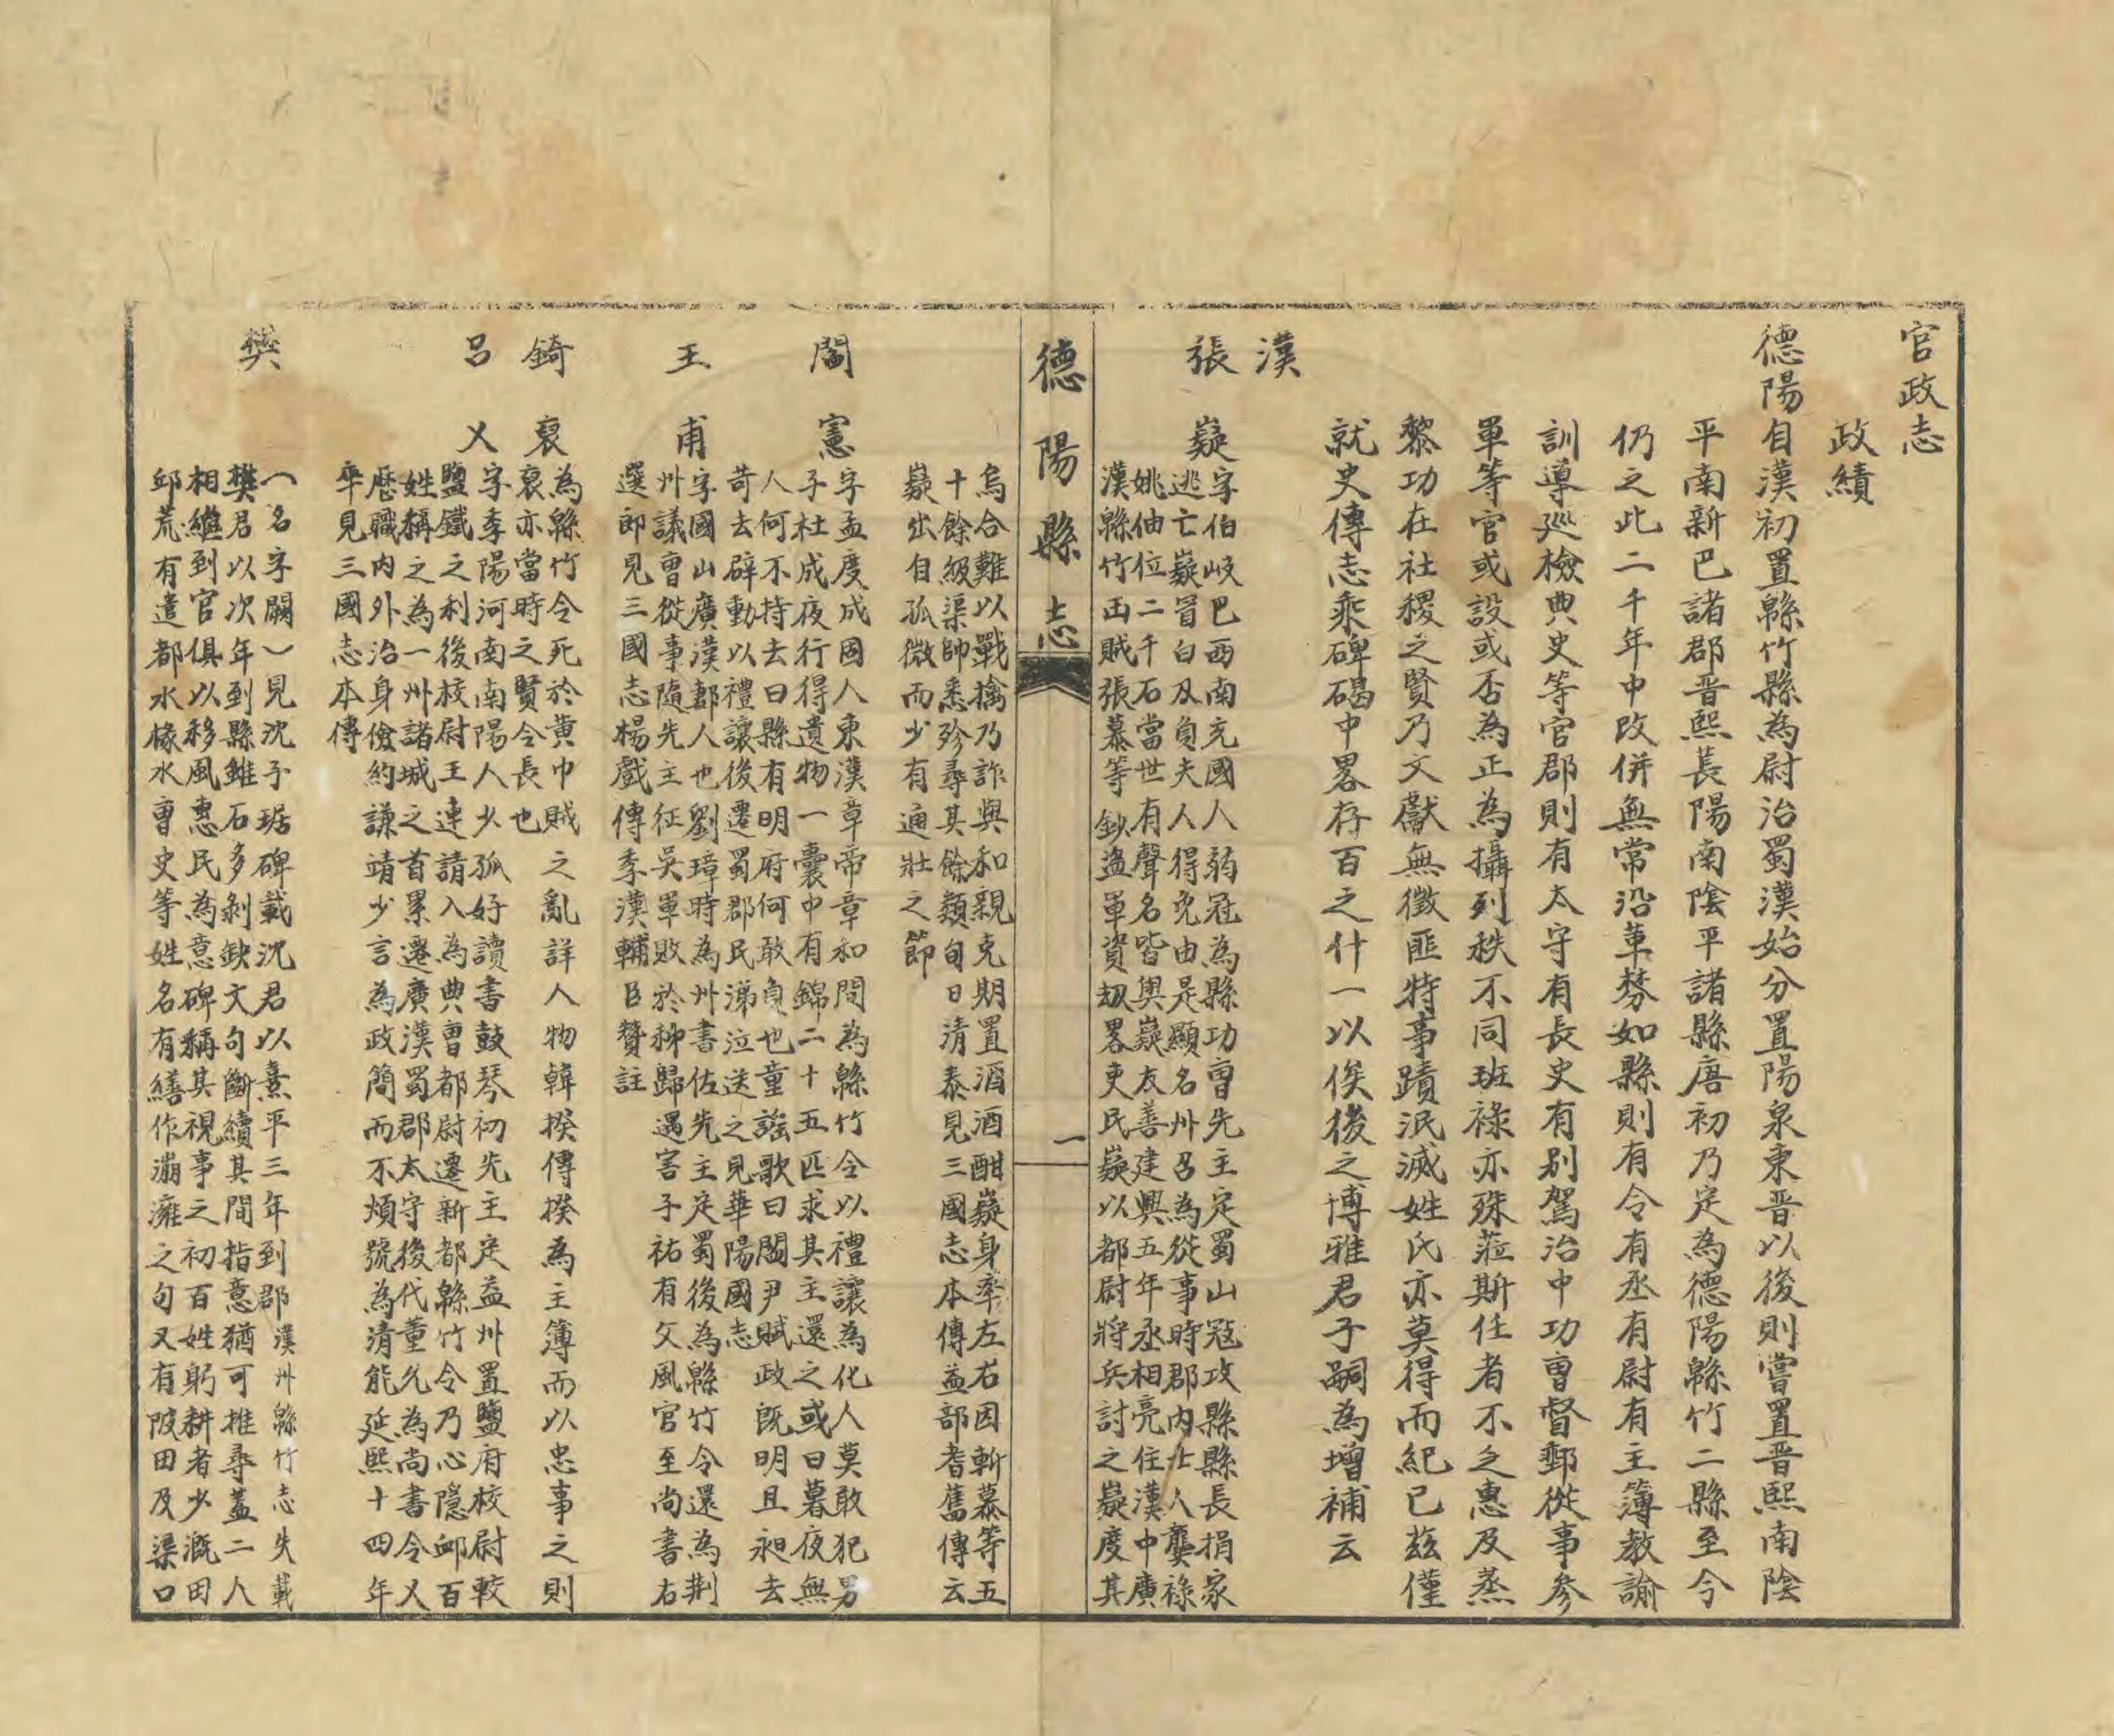 官政志
政績
德陽自漢初置緜竹縣為尉治蜀漢始分置陽泉東晉以後則嘗置晋熙南陰
平南新巴諸郡晋熙萇陽南陰平諸縣唐初乃定為德陽緜竹二縣至今
仍之此二千年中改併無常沿革棼如縣則有令有丞有尉有主簿教諭
訓導巡檢典史等官郡則有太守有長史有别駕治中功曹督郵從事參
軍等官或設或否為正為攝列秩不同班祿亦殊蒞斯任者不乏惠及蒸
黎功在社稷之賢乃文獻無徵匪特事蹟泯滅姓氏亦莫得而紀已茲僅
就史傳志乘碑碣中畧存百之什一以俟後之博雅君子嗣為增補云
漢
張嶷字伯岐巴西南充國人弱冠為縣功曹先主定蜀山寇攻縣縣長捐家
逃亡嶷冒白刃負夫人得免由是顯名州召為從事時郡內士人龔祿
姚伷位二千石當世有聲名皆與嶷友善建興五年丞相亮住漢中廣
漢緜竹山賊張慕等鈔盜軍資刼畧吏民嶷以都尉將兵討之嶷度其
德陽縣志
一
烏合難以戰擒乃詐與和親克期置酒酒酣嶷身率左右因斬慕等五
十餘級渠帥悉殄尋其餘類旬日清泰見三國志本傳益部耆舊傳云
嶷出自孤微而少有通壯之節
閻憲字孟度成固人東漢章帝章和間為緜竹令以禮讓為化人莫敢犯男
子杜成夜行得遺物一囊中有錦二十五匹求其主還之或曰暮夜無
人何不持去曰縣有明府何敢負也童謠歌曰閻尹賦政既明且昶去
苛去辟動以禮讓後遷蜀郡民涕泣送之見華陽國志
王甫字國山廣漢郪人也劉璋時為州書佐先主定蜀後為緜竹令還為荆
州議曹從事隨先主征吳軍敗於秭歸遇害子祐有父風官至尚書右
選郎見三國志楊戲傳季漢輔臣贊註
錡裒為緜竹令死於黄巾賊之亂詳人物韓揆傳揆為主簿而以忠事之則
裒亦當時之賢令長也
呂乂字季陽河南南陽人少孤好讀書鼓琴初先主定益州置鹽府校尉較
鹽鐵之利後校尉王連請入為典曹都尉遷新都緜竹令乃心隱卹百
姓稱之為一州諸城之首累遷廣漢蜀郡太守後代董允為尚書令乂
歷職內外治身儉約謙靖少言為政簡而不煩號為清能延熙十四年
卒見三國志本傳
樊(名字闕)見沈子琚碑載沈君以熹平三年到郡漢州緜竹志失載
樊君以次年到縣雖石多剝缺文句斷續其間指意猶可推尋蓋二人
相繼到官俱以移風惠民為意碑稱其視事之初百姓躬耕者少溉田
邱荒有遣都水椽水曹史等姓名有繕作㴀灉之句又有陂田及渠口